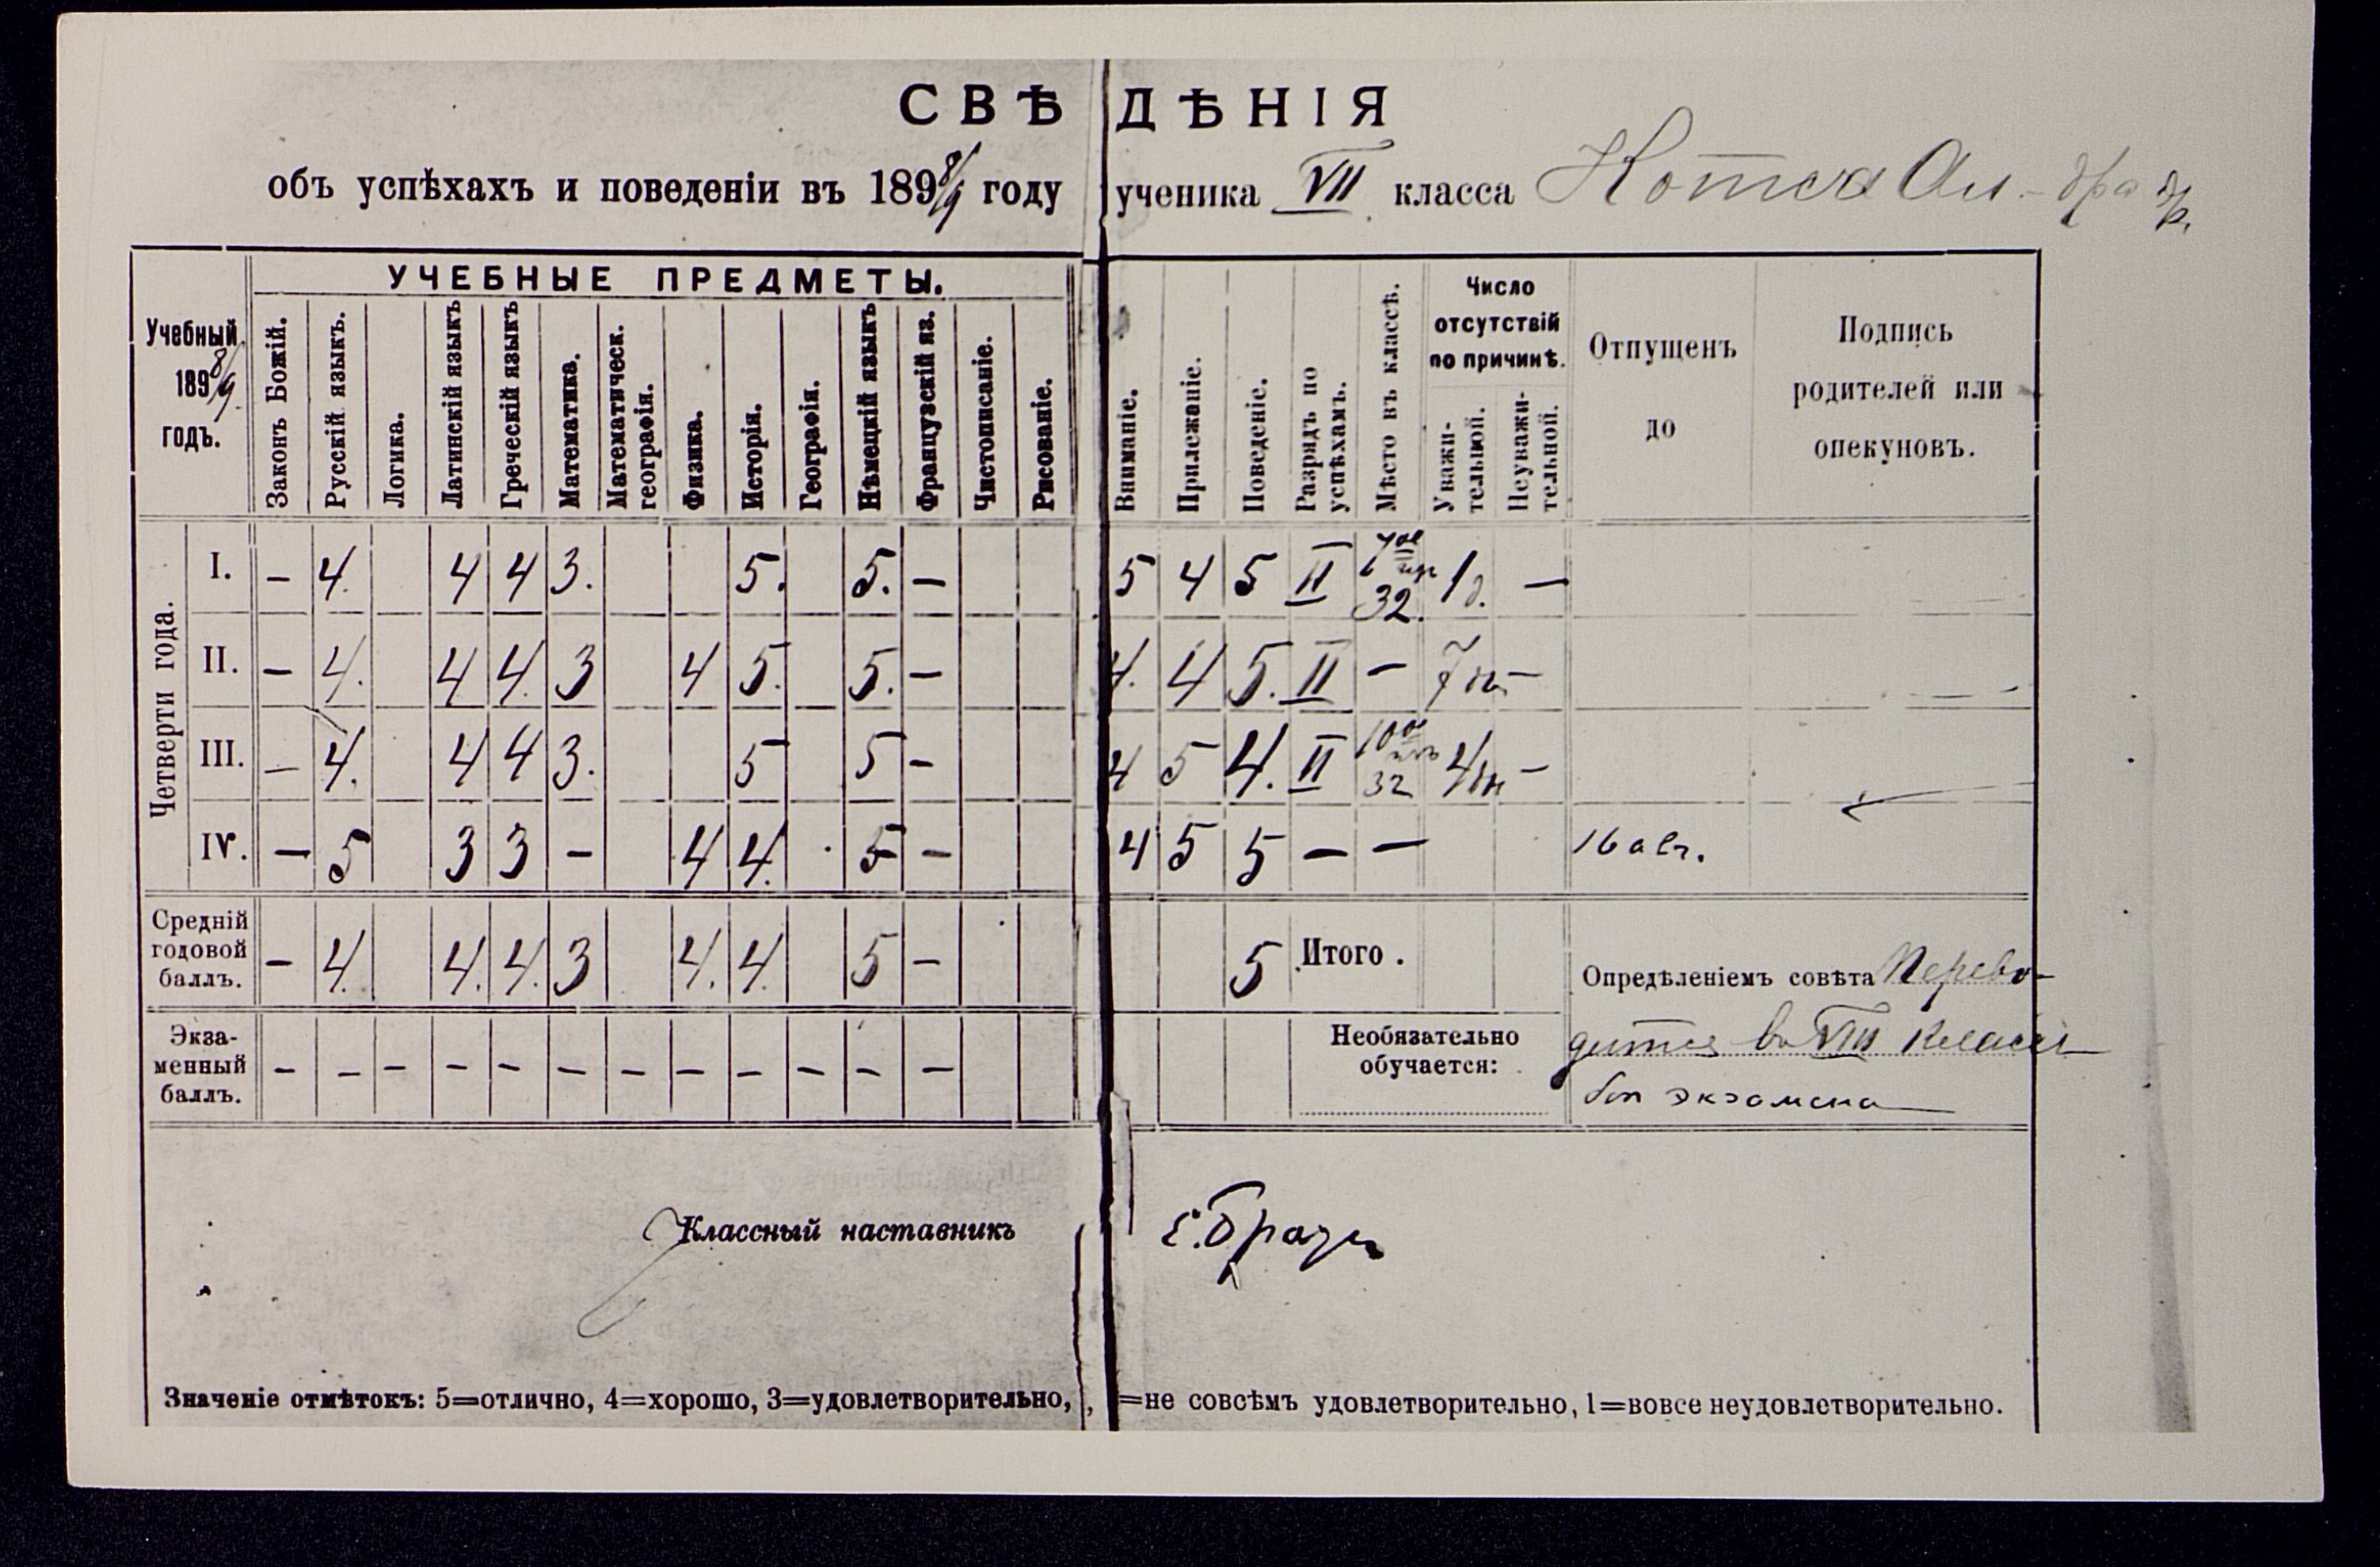 СВѢДѢНІЯ
объ успѣхахъ и поведеніи въ 1898/9 году ученика VII класса Котса Ал-дра
УЧЕБНЫЕ ПРЕДМЕТЫ.
Учебный 1898/9 годъ.
Законъ Божій.
Русскій языкъ.
Логика.
Латинскій языкъ
Греческій языкъ
Математика.
Математическ. географія.
Физика.
Исторія.
Географія.
Нѣмецкій языкъ
Французскій яз.
Чистописаніе.
Рисованіе.
Вниманіе.
Прилежаніе.
Поведеніе.
Разрядъ по успѣхамъ.
Мѣсто въ классѣ.
Число отсутствій по причинѣ.
Уважительной.
Неуважительной.
Отпущенъ до
Подпись родителей или опекуновъ.
Четверти года.
I. – 4. 4 4 3. 5. 5. – 5 4 5 II 7ое изъ 32. 1 д. –
II. – 4. 4 4. 3 4 5. 5. – 4. 4 5. II – 7 –
III. – 4. 4 4 3. 5 5 – 4 5 4. II 10ое изъ 32 4 дн –
IV. – 5 3 3 – 4 4. 5 – 4 5 5 – – 16 авг.
Средній годовой баллъ. – 4. 4. 4. 3 4. 4. 5 – 5 Итого .
Опредѣленіемъ совѣта Перево-
дится въ VIII классъ
без экзамена
Экзаменный баллъ. – – – – – – – – – – – –
Необязательно обучается:
Классный наставникъ
Значеніе отмѣтокъ: 5=отлично, 4=хорошо, 3=удовлетворительно, =не совсѣмъ удовлетворительно, 1=вовсе неудовлетворительно.